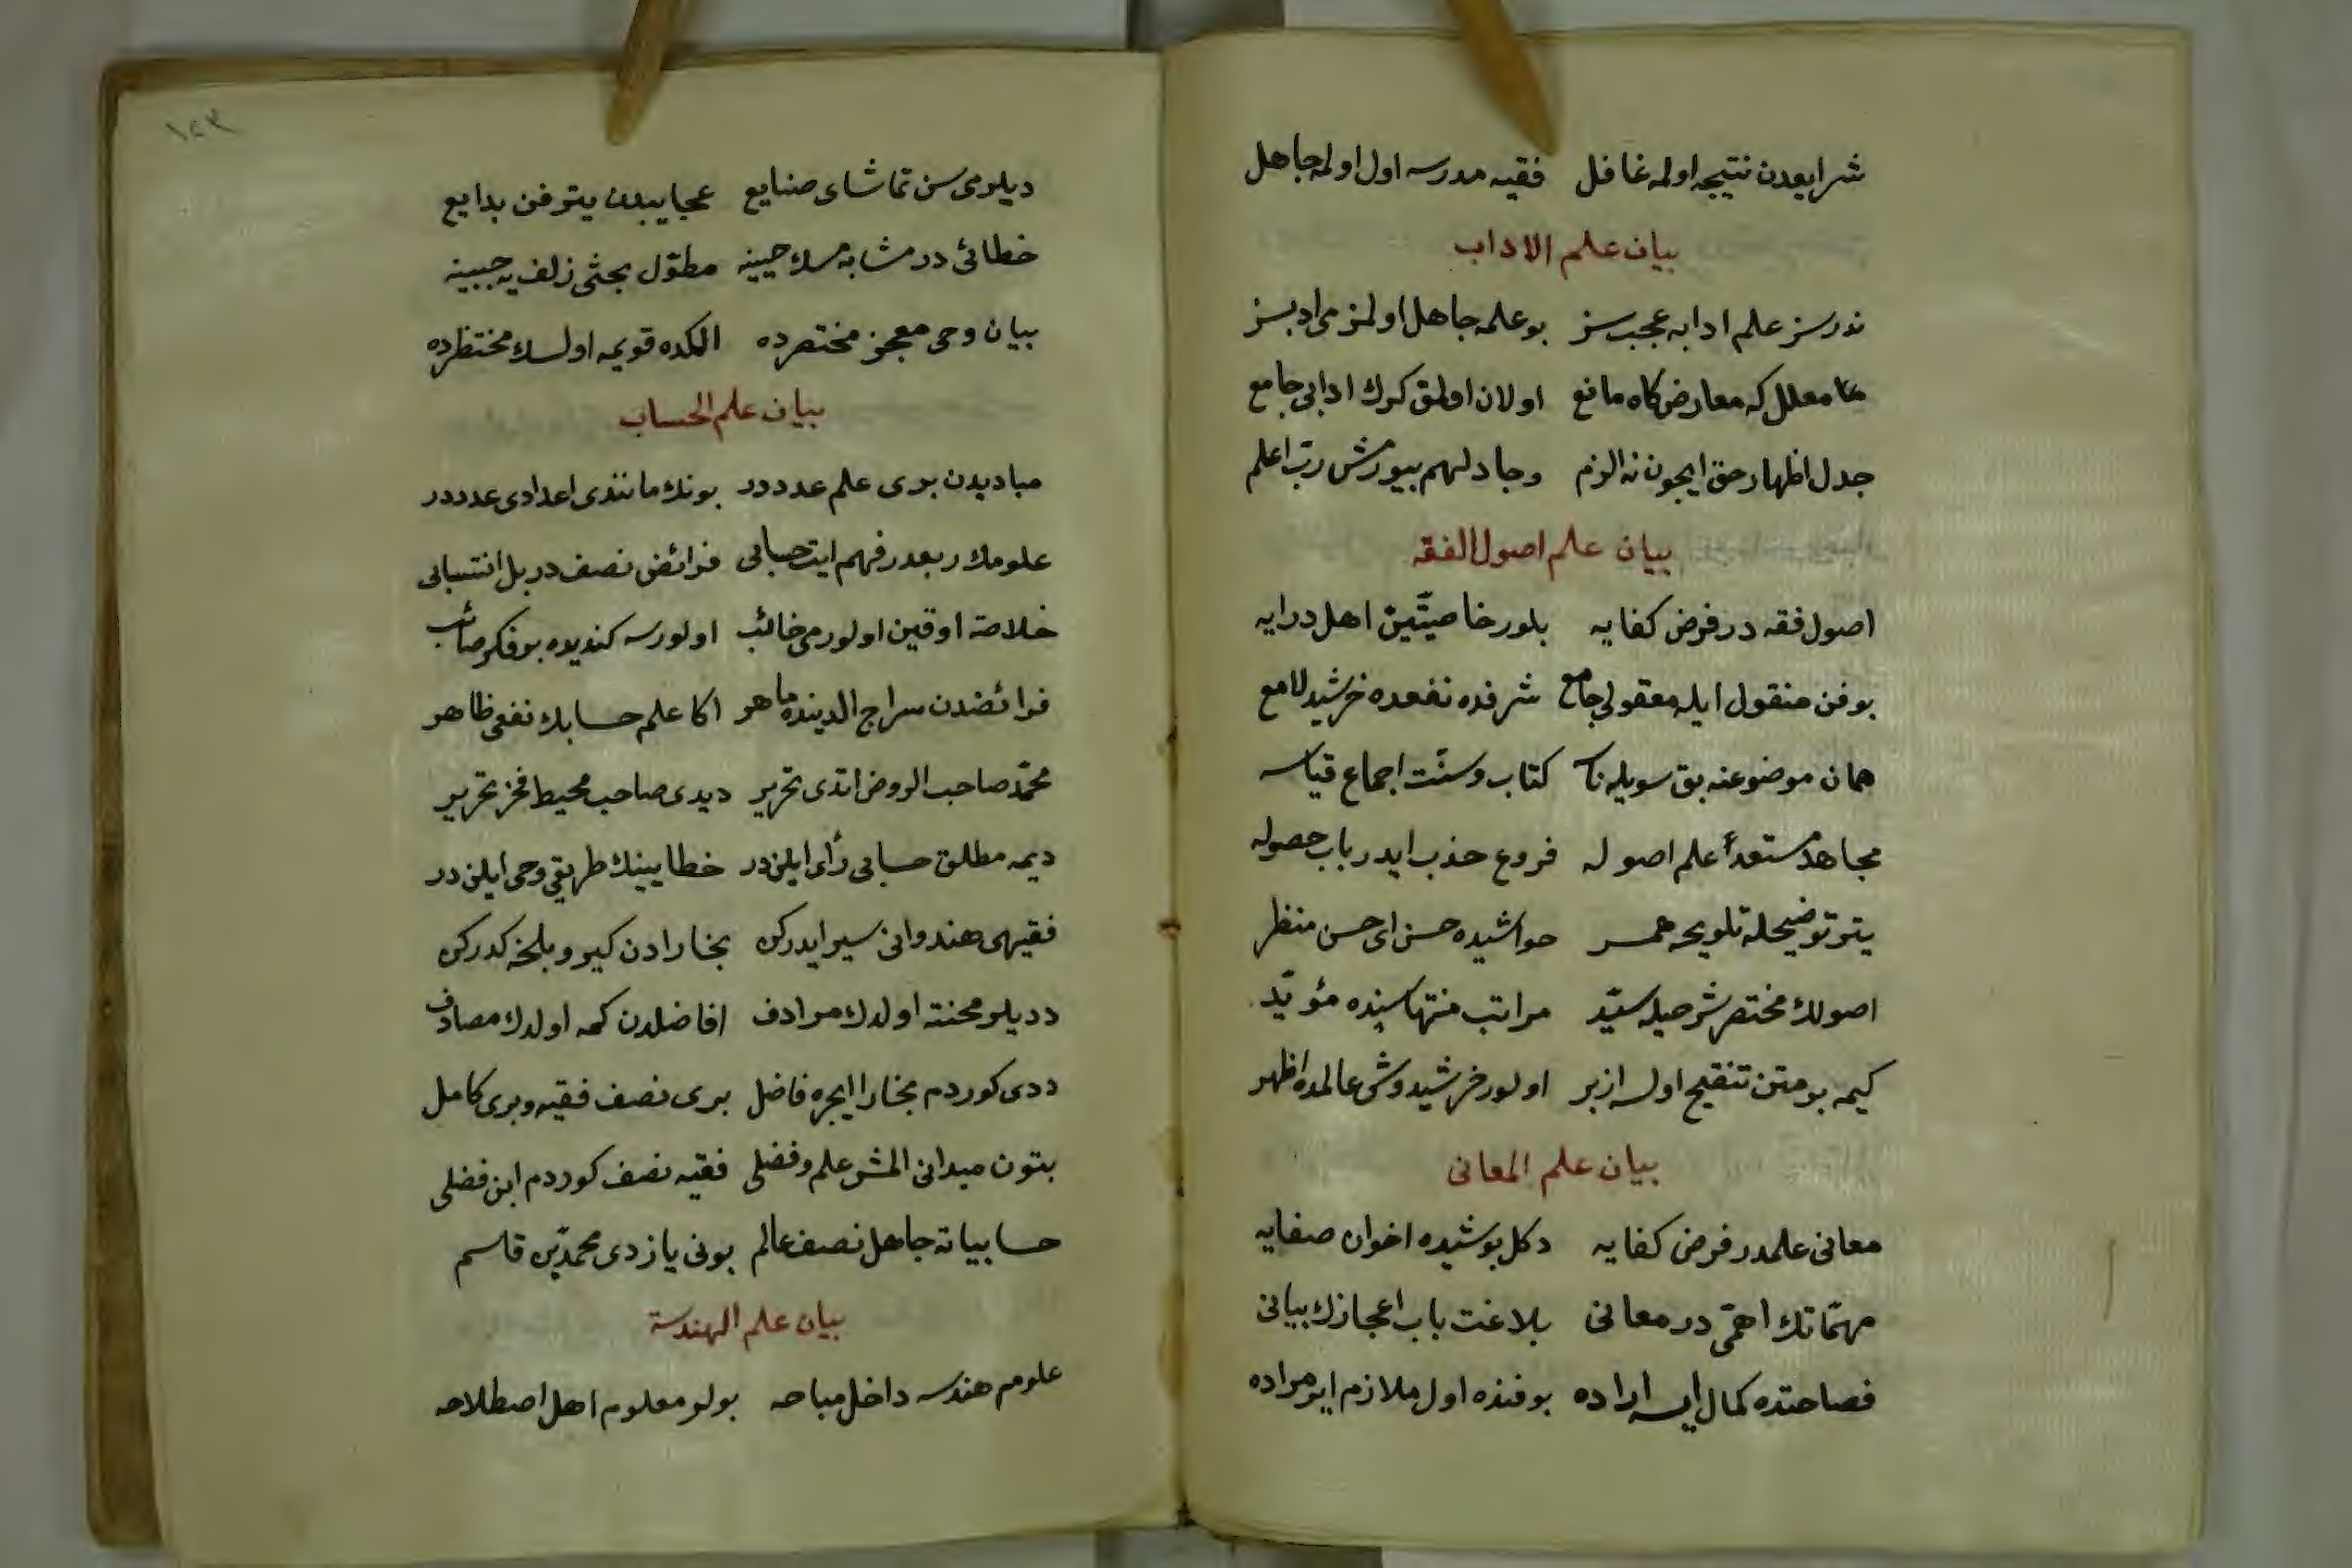 شرابعدن نتیجه اولمه غافل فقیه مدرسه اول اولمه جاهل
بیان علم الاداب
ندرسز علم ادابه عجب سز بو علمه جاهل اولمز می ادبسز
معلل که معارض کاه مانع اولان اولمق کرک ادابی جامع
جدل اظهار حق ایچون نه الزم وجادلهم بیورمش رب اعلم
بیان علم اصول الفقه
اصول فقه در فرض کفایه بلور خاصیتین اهل درایه
بو فن منقول ایله معقولی جامع شرفده نفعده خرشید لامع
همان موضوعنه بق سویله ناسه کتاب و سنّت اجماع قیاسه
مجاهد مستعدّ علم اصوله فروع جذب ایدر باب حصوله
یتر توضیحله تلویحه همسر حواشیده حسن ای حسن منظر
اصولک مختصر شرحیله سیّد مراتب منتهاسنده مؤیّد
کیمه بو متن تنقیح اولسه ازبر اولور خرشیدوش عالمده اظهر
بیان علم المعانی
معانی علمدر فرض کفایه دکل پوشیده اخوان صفایه
مهمّاتک اهمّی در معانی بلاغت باب اعجازک بیانی
فصاحتده کمال ایسه اراده بو فنده اول ملازم ایر مراده
دیلرمی سن تماشای صنایع عجایبدن یتر فن بدایع
خطائی در مشابه مسک چینه مطوّل بحثی زلف پر چینه
بیان وحی معجز مختصرده المکده قویمه اولسک مختظرده
بیان علم الحساب
مبادیدن بری علم عدددر بونک مانندی اعدادی عدددر
علومک ربعدر فهم ایت حسابی فرائض نصف در بل انتسابی
خلاصه اوقین اولورمی خائب اولورسه کندیده بو فکر صائب
فرائضدن سراج الدینده ماهر اکا علم حسابک نفعی ظاهر
محمّد صاحب الروض اتدی تحریر دیدی صاحب محیط فخر تحریر
دیمه مطلق حسابی رأی ایلندر خطایینک طریقی وحی ایلندر
فقیهی هندوانی سیر ایدرکن بخارادن کیرو بلخه کدرکن
ددیلر محنته اولدک مرادف افاضلدن کمه اولدک مصادف
ددی کوردم بخارا ایچره فاضل بری نصف فقیه و بری کامل
بتون میدانی المش علم و فضلی فقیه نصف کوردم ابن فضلی
حسابیاته جاهل نصف عالم بونی یازدی محمد بن قاسم
بیان علم الهندسة
علومم هندسه داخل مباحه بولر معلوم اهل اصطلاحه